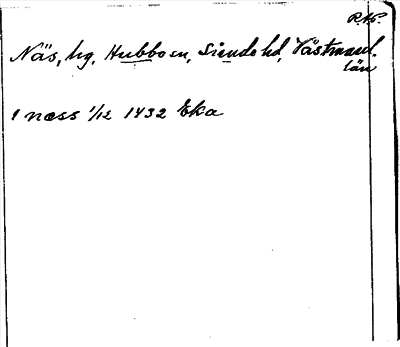 R.N.
Näs, hg, Hubbo sn, Siende hd, Västmanl.
län
i næss 1/12 1432 Eka